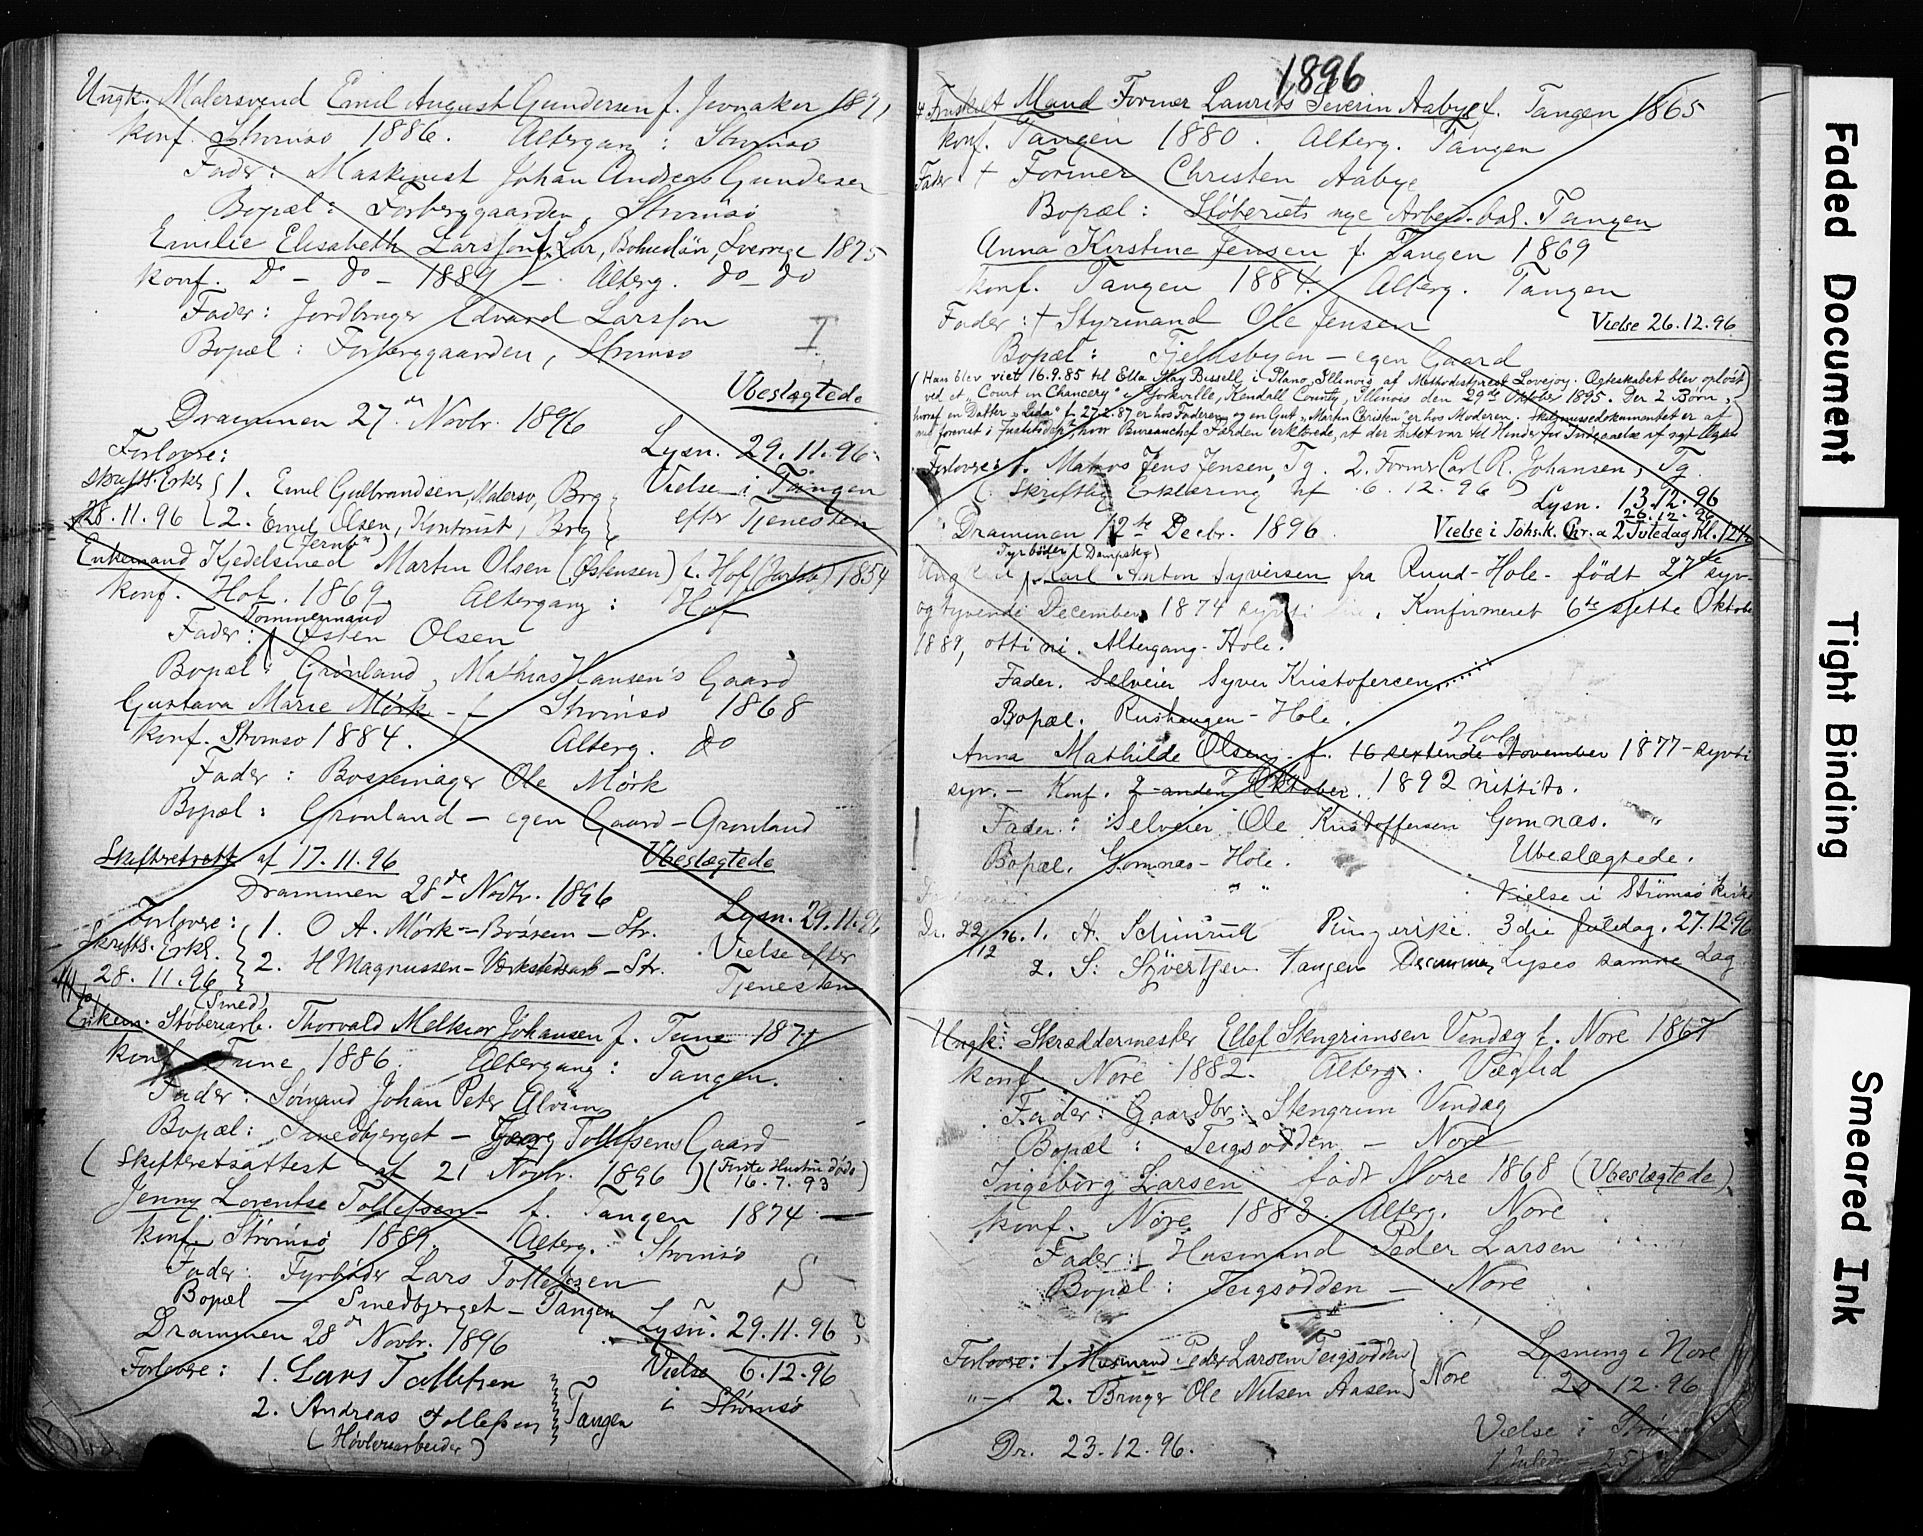 Ungk. Malersvend Emil August Gundersen f. Jevnaker 1871
konf. Strømsø 1886. Altergang: Strømsø
Fader: Maskinist Johan Andreas Gundersen
Bopæl: Forberggaarden, Strømsø
Emilie Elisabeth Larsson f. Lur, Bohuslän, Sverrige 1875
konf. do - do - 1889 - Alterg. do - do
Fader: Jordbruger Edvard Larsson
Bopæl: Forberggaarden, Strømsø
I
Ubeslægtede
Drammen 27de Novbr. 1896
Forlovere:
Lysn. 29.11.96
Skriftl. Erkl.
28.11.96
1. Emil Gulbrandsen, Malersv., Brg
2. Emil Olsen, Kontorist, Brg
Vielse i Tangen
efter Tjenesten
(Jernb)
Enkemand Kjedelsmed Martin Olsen (Østensen) f. Hof (Jarlsbg) 1854
konf. Hof. 1869 Altergang: Hof
Tømmermand
Fader: Østen Olsen
Bopæl: Grønland, Mathias Hansen's Gaard
Gustava Marie Mørk - f. Strømsø 1868
konf. Strømsø 1884. Alterg. do
Fader: Bøssemager Ole Mørk
Bopæl: Grønland - egen Gaard - Grønland
Skifteretsatt. af 17.11.96 Ubeslægtede
Drammen 28de Novbr. 1896
Forlovere:
Skriftl. Erkl.
28.11.96
1. O A. Mørk - Bøssem - Str.
2. H Magnussen - Værkstedsarb - Str.
Lysn. 29.11.96
Vielse efter
Tjenesten
(Smed)
Enkem. Støberiarb. Thorvald Melkior Johansen f. Tune 1871
konf. Tune 1886. Altergang: Tangen.
Fader: Sømand Johan Peter
Bopæl: Smedbjerget - Georg Tollefsens Gaard
(Skifteretsattest af 21 Novbr. 1896) (Første Hustru døde
16.7.93)
Jenny Lorentse Tollefsen - f. Tangen 1874 -
konf. Strømsø 1889. Alterg. Strømsø
Fader: Fyrbøder Lars Tollefsen
Bopæl - Smedbjerget - Tangen
Drammen 28de Novbr. 1896
Lysn. 29.11.96
Forlovere: 1. Lars Tollefsen
2. Andreas Tollefsen
(Høvleriarbeider)
Tangen
Vielse 6.12.96
i Strømsø
1896
Fraskilt Mand Former Laurits Severin Aabye f. Tangen 1865
konf. Tangen 1880. Alterg. Tangen
Fader: † Former Christen Aabye
Bopæl: Støberiets nye Arbeid.bol. Tangen
Anna Kirstine Jensen f. Tangen 1869
konf. Tangen 1884. Alterg. Tangen
Fader: † Styrmand Ole Jensen
Vielse 26.12.96
Bopæl: Fjeldsbyen - egen Gaard
(Han blev viet 16.9.85 til Ella May Bissell i Plano, Illinois af Methodistprest Lovejoy. Ægteskabet blev opløst
ved et "Court in Chancery" i Yorkville, Kendall County, Illinois den 29de Oktober 1895. Der 2 Børn,
hvoraf en Datter "Leda" f. 27.2.87 er hos Faderen og en Gut, "Martin Christen" er hos Moderen. Skilsmissedokumentet er af
mig forevist i Justitsdep., hvor Bureauchef Færden erklærede, at der Intet var til Hinder for Indgaaelse af nyt Ægtesk
Forlovere: 1. Matros Jens Jensen, Tg. 2. Former Carl R. Johansen, Tg.
(Skriftlig Erklæring af 6.12.96)
Lysn. 13.12.96
26.12.96
Drammen 12te Decbr. 1896.
Vielse i Johs.k. Chr.a 2 Juledag kl. 12½
Fyrbøder (Dampskg)
Ungkarl Karl Anton Syversen fra Rund-Hole - født 27de syv-
og tyvende December 1874 . Konfirmeret 6te sjette Oktober
1889, otti ni. Altergang - Hole.
Fader. Selveier Syver Kristofersen.
Bopæl. Rushaugen - Hole.
Hole
Anna Mathilde Olsen, f. 16 sextende November 1877 - sytti
syv. - Konf. 2 anden Oktober. 1892 nittito.
Fader: Selveier Ole Kristoffersen Gomnæs.
Bopæl. Gomnæs - Hole.
Ubeslægtede.
Vielse i Strømsø kirke
Dr. 22/12 96. 1. A. Ringerike. 3die Juledag. 27.12.96
2. S. Syvertsen Tangen Drammen Lyses samme Dag
Ungk. Skræddermester Ellef Stengrimsen Vindæg f. Nore 1867
konf Nore 1882. Alterg. Væglid
Fader: Gaardbr: Stengrim Vindæg
Bopæl: Teigsodden - Nore
Ingeborg Larsen født Nore 1868 (Ubeslægtede)
konf. Nore 1883. Alterg. Nore
Fader: Husmand Peder Larsen
Bopæl: Teigsodden - Nore
Forlovere: 1. Husmand Peder Larsen Teigsodden
"-" 2. Bruger Ole Nilsen Aasen
Nore
Lysning i Nore
20.12.96
Dr. 23.12.96.
Vielse i Strømsø
1 Juledag 25
Faded Document
Tight Binding
Smeared Ink